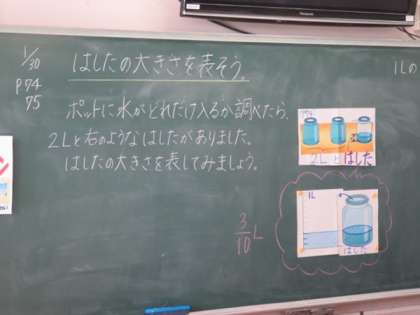 1/30
P74
75
はしたの大きさを表そう。
ポットに水がどれだけ入るか調べたら、
2Lと右のようなはしたがありました。
はしたの大きさを表してみましょう。
2Lとはした
1L
はした
3/10 L
1Lの
Panasonic